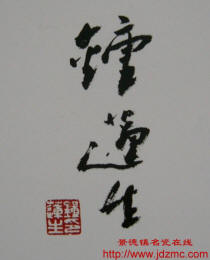 鐘蓮生
蓮生
景德镇名瓷在线
http://www.jdzmc.com